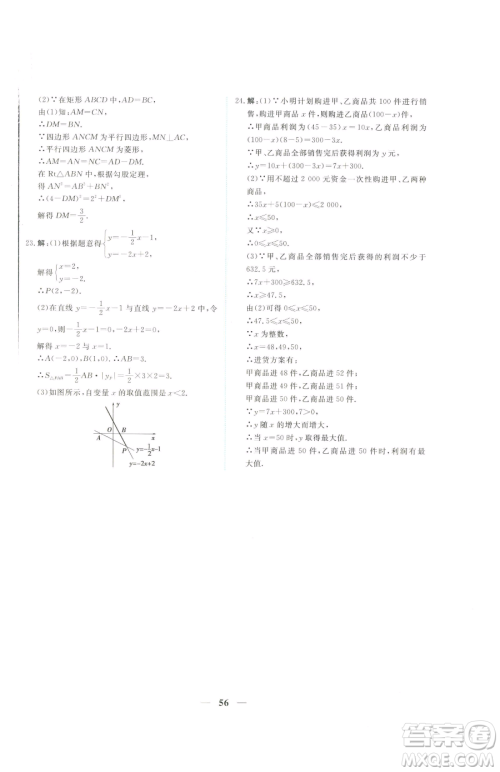 (2)∵在矩形 ABCD 中,AD=BC,
由(1)知,AM=CN,
∴DM=BN.
∵四边形 ANCM 为平行四边形,MN⊥AC,
∴平行四边形 ANCM 为菱形.
在 Rt△ABN 中,根据勾股定理,
得 AN²=AB²+BN²,
∴(4-DM)²=2²+DM²,
解得 DM=3/2.
23.解:(1)根据题意得{y=-1/2x-1,
y=-2x+2,
解得{x=2,
y=-2.
∴P(2,-2).
(2)在直线 y=-1/2x-1 与直线 y=-2x+2 中,令
y=0,则-1/2x-1=0 与-2x+2=0.
解得 x=-2 与 x=1.
∴A(-2,0),B(1,0),∴AB=3.
∴S△PAB=1/2AB·|yₚ|=1/2×3×2=3.
(3)如图所示,自变量 x 的取值范围是 x<2.
y
A
O
B
x
P
y=-1/2x-1
y=-2x+2
24.解:(1)∵小明计划购进甲、乙商品共 100 件进行销
售,设购进甲商品 x 件,则购进乙商品(100-x)件,
∴甲商品利润为(45-35)x=10x,乙商品利润为
(100-x)(8-5)=300-3x.
∵甲、乙商品全部销售完后获得利润为 y 元,
∴y=10x+(300-3x)=7x+300.
(2)∵用不超过 2 000 元资金一次性购进甲、乙商品,
∴35x+5(100-x)≤2 000.
∴x≤50.
又∵x≥0,
∴0≤x≤50.
(3)∵甲、乙商品全部销售完后获得的利润不少于
632.5 元,
∴7x+300≥632.5,
∴x≥47.5.
由(2)可得 0≤x≤50,
∴47.5≤x≤50.
∵x 为整数,
∴x=48,49,50.
∴进货方案有:
甲商品进 48 件,乙商品进 52 件;
甲商品进 49 件,乙商品进 51 件;
甲商品进 50 件,乙商品进 50 件.
∵y=7x+300,7>0,
∴y 随 x 的增大而增大.
∴当 x=50 时,y 取得最大值.
∴当甲商品进 50 件,乙商品进 50 件时,利润有最
大值.
56
答案圈
MXQE.COM